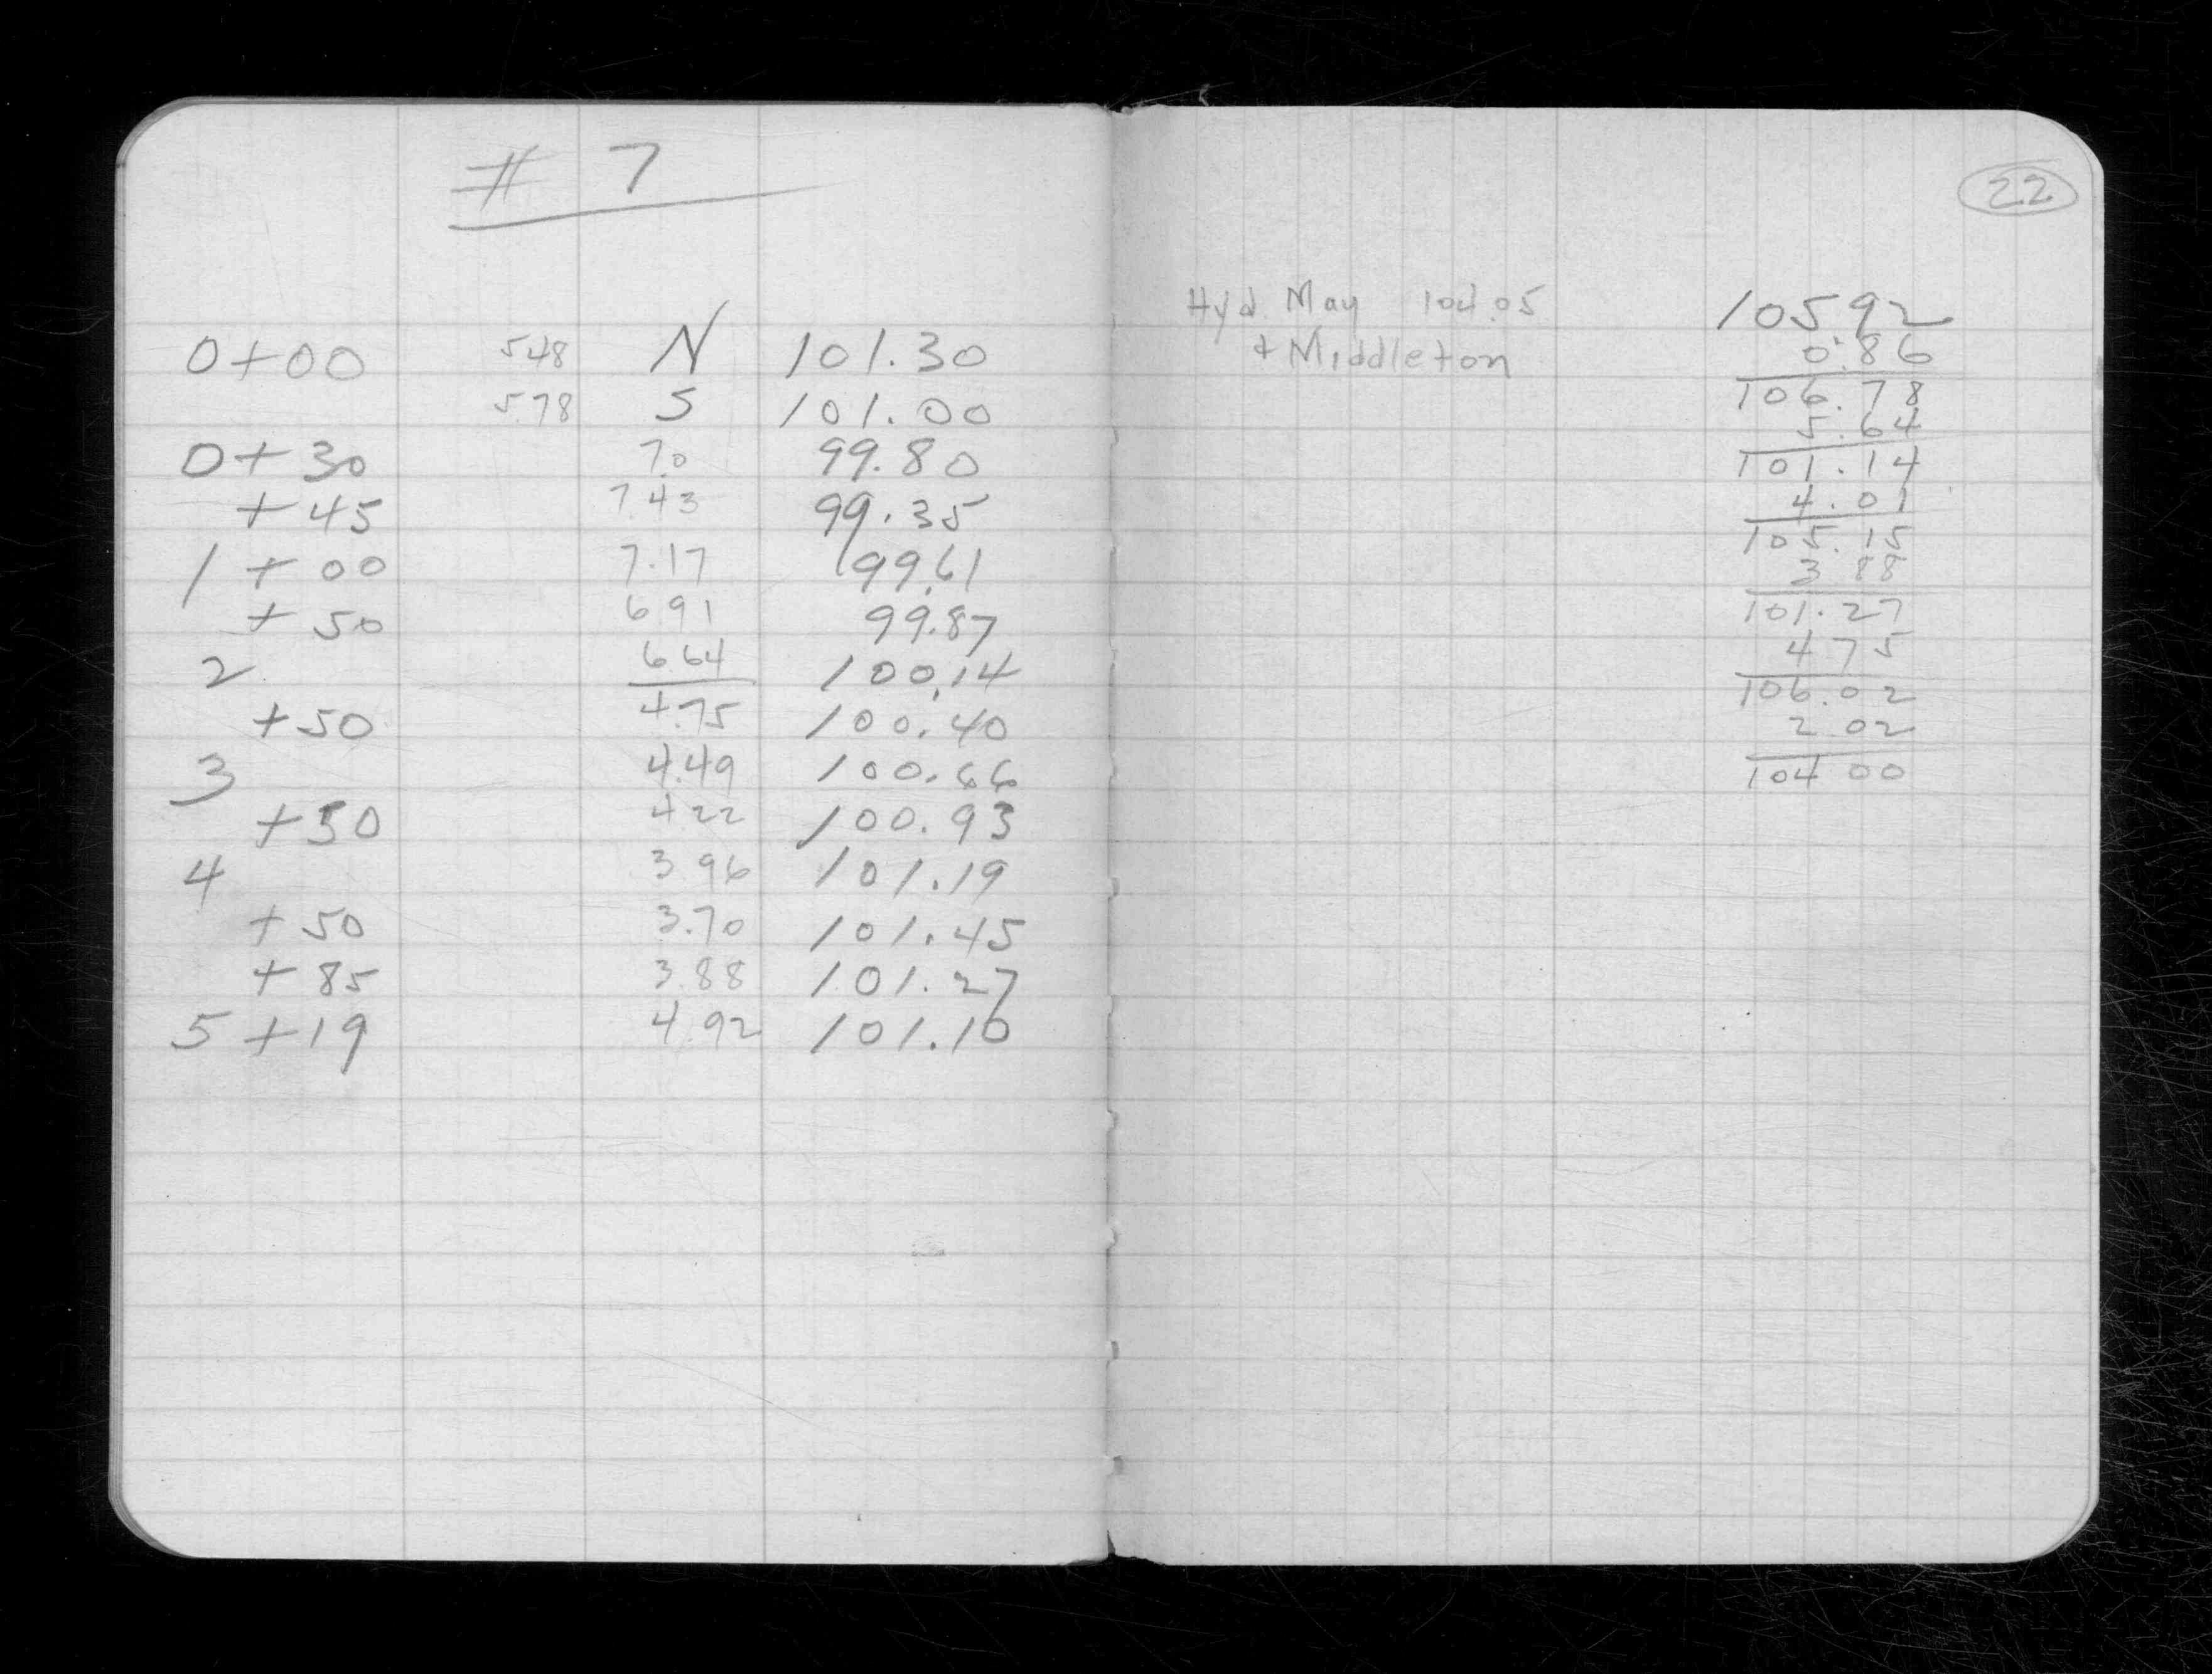 # 7
0+00 5.48 N 101.30
5.78 S 101.00
0+30 7.0 99.80
+45 7.43 99.35
1+00 7.17 99.61
+50 6.91 99.87
2 6.64 100.14
+50 4.75 100.40
3 4.49 100.66
+50 4.22 100.93
4 3.96 101.19
+50 3.70 101.45
+85 3.88 101.27
5+19 4.92 101.10
22
Hyd. May 104.05
+ Middleton
105.92
0.86
106.78
5.64
101.14
4.01
105.15
3.88
101.27
4.75
106.02
2.02
104.00